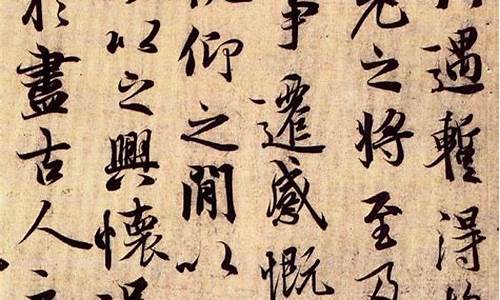 遇暫得
老之將至及
事遷感慨
俛仰之閒以
以之興懷況
於盡古人云